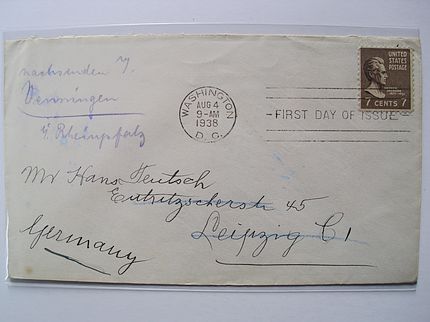 nachsenden n/
Venningen
i/ Rheinpfalz
WASHINGTON
AUG 4
9-AM
1938
D. C.
FIRST DAY OF ISSUE
UNITED STATES
POSTAGE
7 CENTS 7
Mr Hans Teutsch
Eutritzscherstr 45
Leipzig C 1
Germany